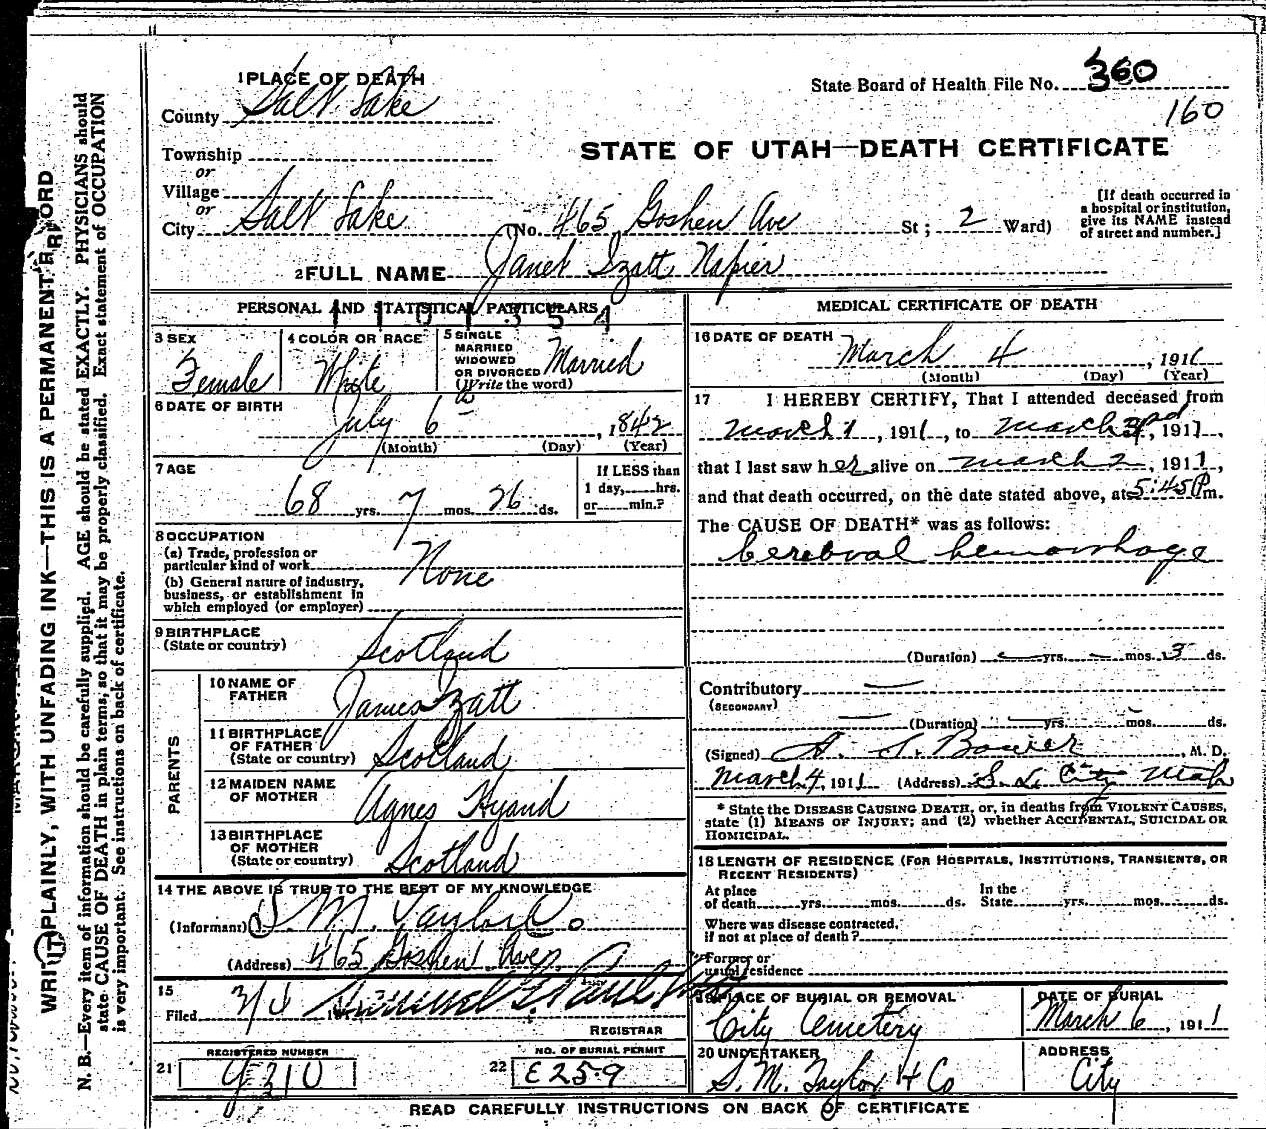 1 PLACE OF DEATH
County Salt Lake
State Board of Health File No. 360
160
Township
or
Village
or
City Salt Lake (No. 465 Goshen Ave St; 2 Ward)
STATE OF UTAH—DEATH CERTIFICATE
[If death occurred in
a hospital or institution,
give its NAME instead
of street and number.]
2 FULL NAME Janet Izatt Napier
PERSONAL AND STATISTICAL PARTICULARS
1101354
3 SEX
Female
4 COLOR OR RACE
White
5 SINGLE
MARRIED
WIDOWED
OR DIVORCED
(Write the word)
Married
6 DATE OF BIRTH
July 6th, 1842
(Month) (Day) (Year)
7 AGE
68 yrs. 7 mos. 26 ds.
If LESS than
1 day, hrs.
or min.?
8 OCCUPATION
(a) Trade, profession or
particular kind of work None
(b) General nature of industry,
business, or establishment in
which employed (or employer)
9 BIRTHPLACE
(State or country) Scotland
PARENTS
10 NAME OF
FATHER James Izatt
11 BIRTHPLACE
OF FATHER
(State or country) Scotland
12 MAIDEN NAME
OF MOTHER Agnes
13 BIRTHPLACE
OF MOTHER
(State or country) Scotland
14 THE ABOVE IS TRUE TO THE BEST OF MY KNOWLEDGE
(Informant) S. M. Taylor Co
(Address) 465 Goshen Ave
15
Filed
REGISTRAR
REGISTERED NUMBER
21
NO. OF BURIAL PERMIT
22 E259
MEDICAL CERTIFICATE OF DEATH
16 DATE OF DEATH
March 4, 1911
(Month) (Day) (Year)
17 I HEREBY CERTIFY, That I attended deceased from
March 1, 1911, to March 3rd, 1911,
that I last saw her alive on March 2, 1911,
and that death occurred, on the date stated above, at 5:45 P m.
The CAUSE OF DEATH* was as follows:
Cerebral hemorrhage
(Duration) — yrs. — mos. 3 ds.
Contributory —
(SECONDARY)
— (Duration) — yrs. mos. ds.
(Signed) , M. D.
March 4, 1911 (Address) S. L. City Utah
* State the DISEASE CAUSING DEATH, or, in deaths from VIOLENT CAUSES,
state (1) MEANS OF INJURY; and (2) whether ACCIDENTAL, SUICIDAL OR
HOMICIDAL.
18 LENGTH OF RESIDENCE (FOR HOSPITALS, INSTITUTIONS, TRANSIENTS, OR
RECENT RESIDENTS)
At place
of death yrs. mos. ds.
In the
State yrs. mos. ds.
Where was disease contracted,
if not at place of death?
Former or
usual residence
19 PLACE OF BURIAL OR REMOVAL
City Cemetery
DATE OF BURIAL
March 6, 1911
20 UNDERTAKER
S. M. Taylor & Co
ADDRESS
City
READ CAREFULLY INSTRUCTIONS ON BACK OF CERTIFICATE
WRITE PLAINLY, WITH UNFADING INK—THIS IS A PERMANENT RECORD
N. B.—Every item of information should be carefully supplied. AGE should be stated EXACTLY. PHYSICIANS should
state CAUSE OF DEATH in plain terms, so that it may be properly classified. Exact statement of OCCUPATION
is very important. See instructions on back of certificate.